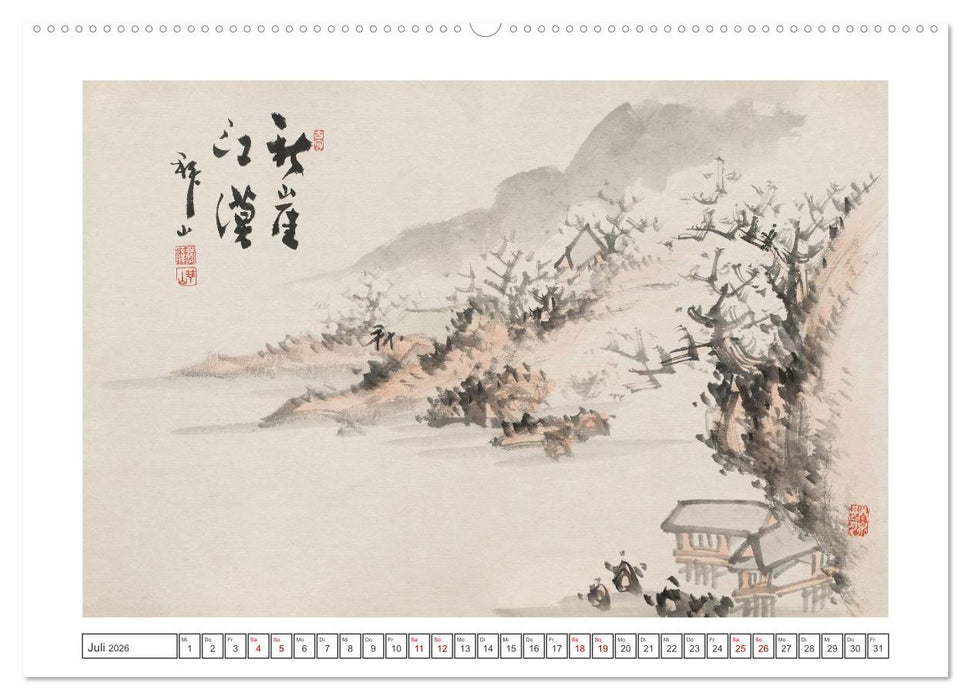 秋崖
江漠
Juli 2026
Mi Do Fr Sa So Mo Di Mi Do Fr Sa So Mo Di Mi Do Fr Sa So Mo Di Mi Do Fr Sa So Mo Di Mi Do Fr
1 2 3 4 5 6 7 8 9 10 11 12 13 14 15 16 17 18 19 20 21 22 23 24 25 26 27 28 29 30 31